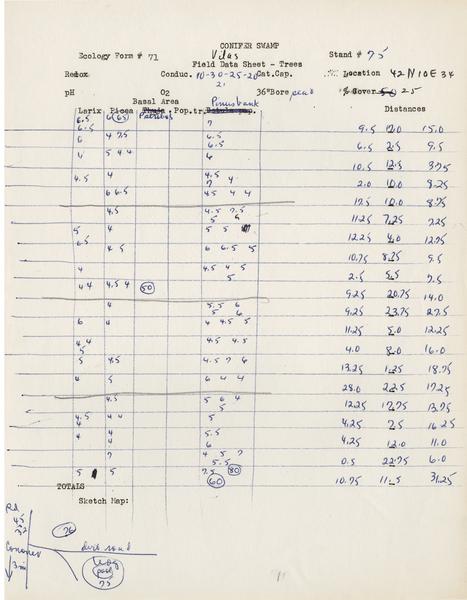 CONIFER SWAMP
Ecology Form # 71 Vilas Stand # 75
Field Data Sheet - Trees
Redox Conduc. 10-30-25-20 Cat.Cap. Location 42N10E34
21
pH O2 36"Bore peat Cover 50 25
Basal Area Pinus bank Distances
Larix Picea Thuja Pop.tr.
6.5 6 (65) 7
6.5 9.5 12.0 15.0
6 4 7.5 6.5
6.5 6.5 2.5 9.5
5 4 4 6
10.5 12.5 3.75
4.5 4 4.5
7 4 2.0 10.0 8.25
6 6.5 4.5 4 4
17.5 10.0 8.75
4.5 4.5 7.5
5 11.25 7.25 7.25
5 4 5 5
6.5 12.25 4.0 12.75
4.5 6 6.5 5
10.75 8.75 9.5
4 4.5 4 5
5 2.5 5.5 7.5
4 4 4.5 4 (50)
9.25 20.75 14.0
4 5.5 6
5 6 9.25 23.75 27.5
6 4 4 4.5 5
11.25 5.0 12.25
4.4 4.5 4.5
5 4.0 8.0 16.0
5 4.5 4.5 7 6
13.25 1.25 18.75
4 5 6 4 4
28.0 22.5 17.25
4.5 5 6 4
5 12.25 17.75 13.75
4.5 4 4 5
4 4.25 7.5 16.25
4 4 5.5
4 6 4.25 12.0 11.0
7 4 5 7
5.5 0.5 22.75 6.0
5 5 7.5 (80)
(60) 10.75 11.5 31.25
TOTALS
Sketch Map:
Rd
45
76
Conover dirt road
3 mi
bog
75